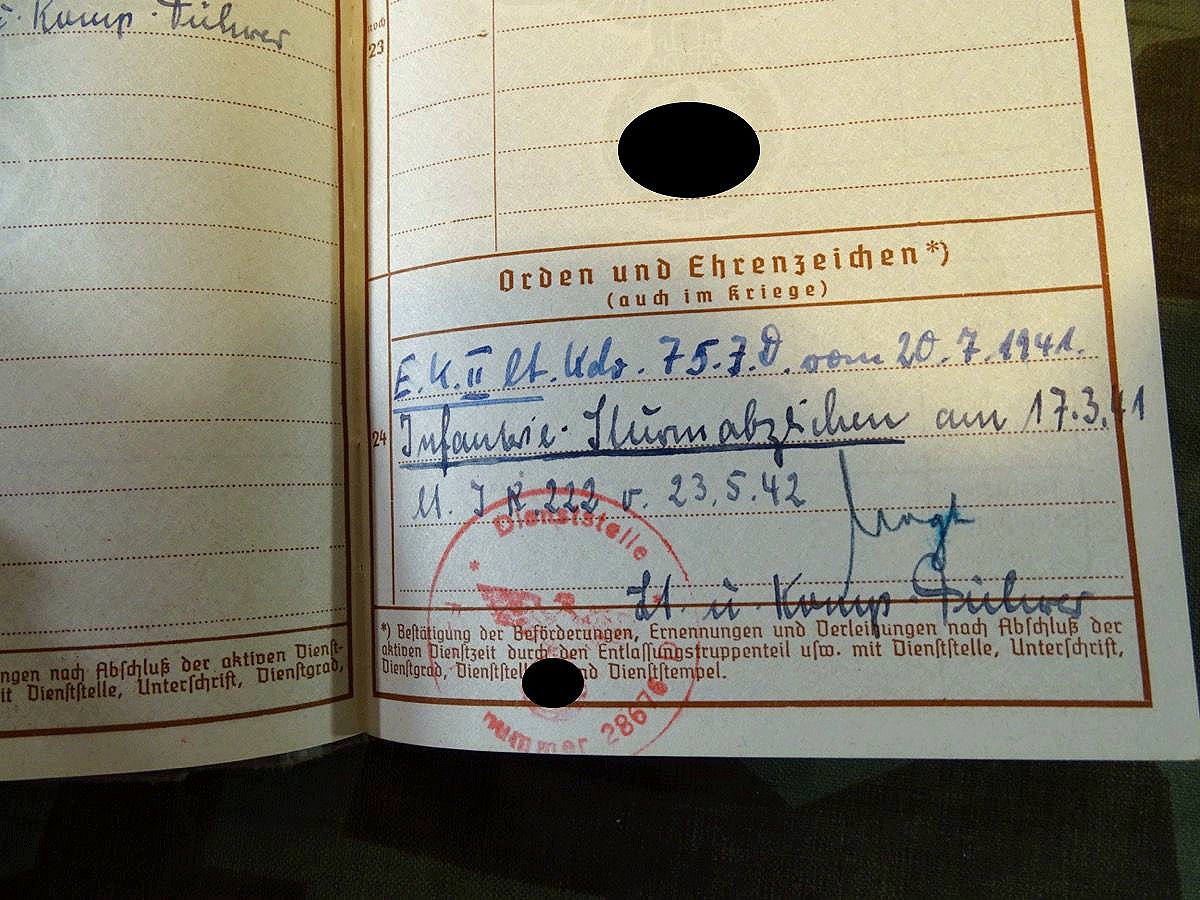 Komp. Führer
noch
23
Orden und Ehrenzeichen*)
(auch im Kriege)
E.K. II lt. Kdr. 75. J.D. vom 20.7.1941.
24
Infanterie-Sturmabzeichen am 17.3.41
J R. 222 v. 23.5.42
Lt. u. Komp. Führer
Dienststelle
nummer 28676
*) Bestätigung der Beförderungen, Ernennungen und Verleihungen nach Abschluß der
aktiven Dienstzeit durch den Entlassungstruppenteil usw. mit Dienststelle, Unterschrift,
Dienstgrad, Dienststell nd Dienststempel.
ngen nach Abschluß der aktiven Dienst-
it Dienststelle, Unterschrift, Dienstgrad,